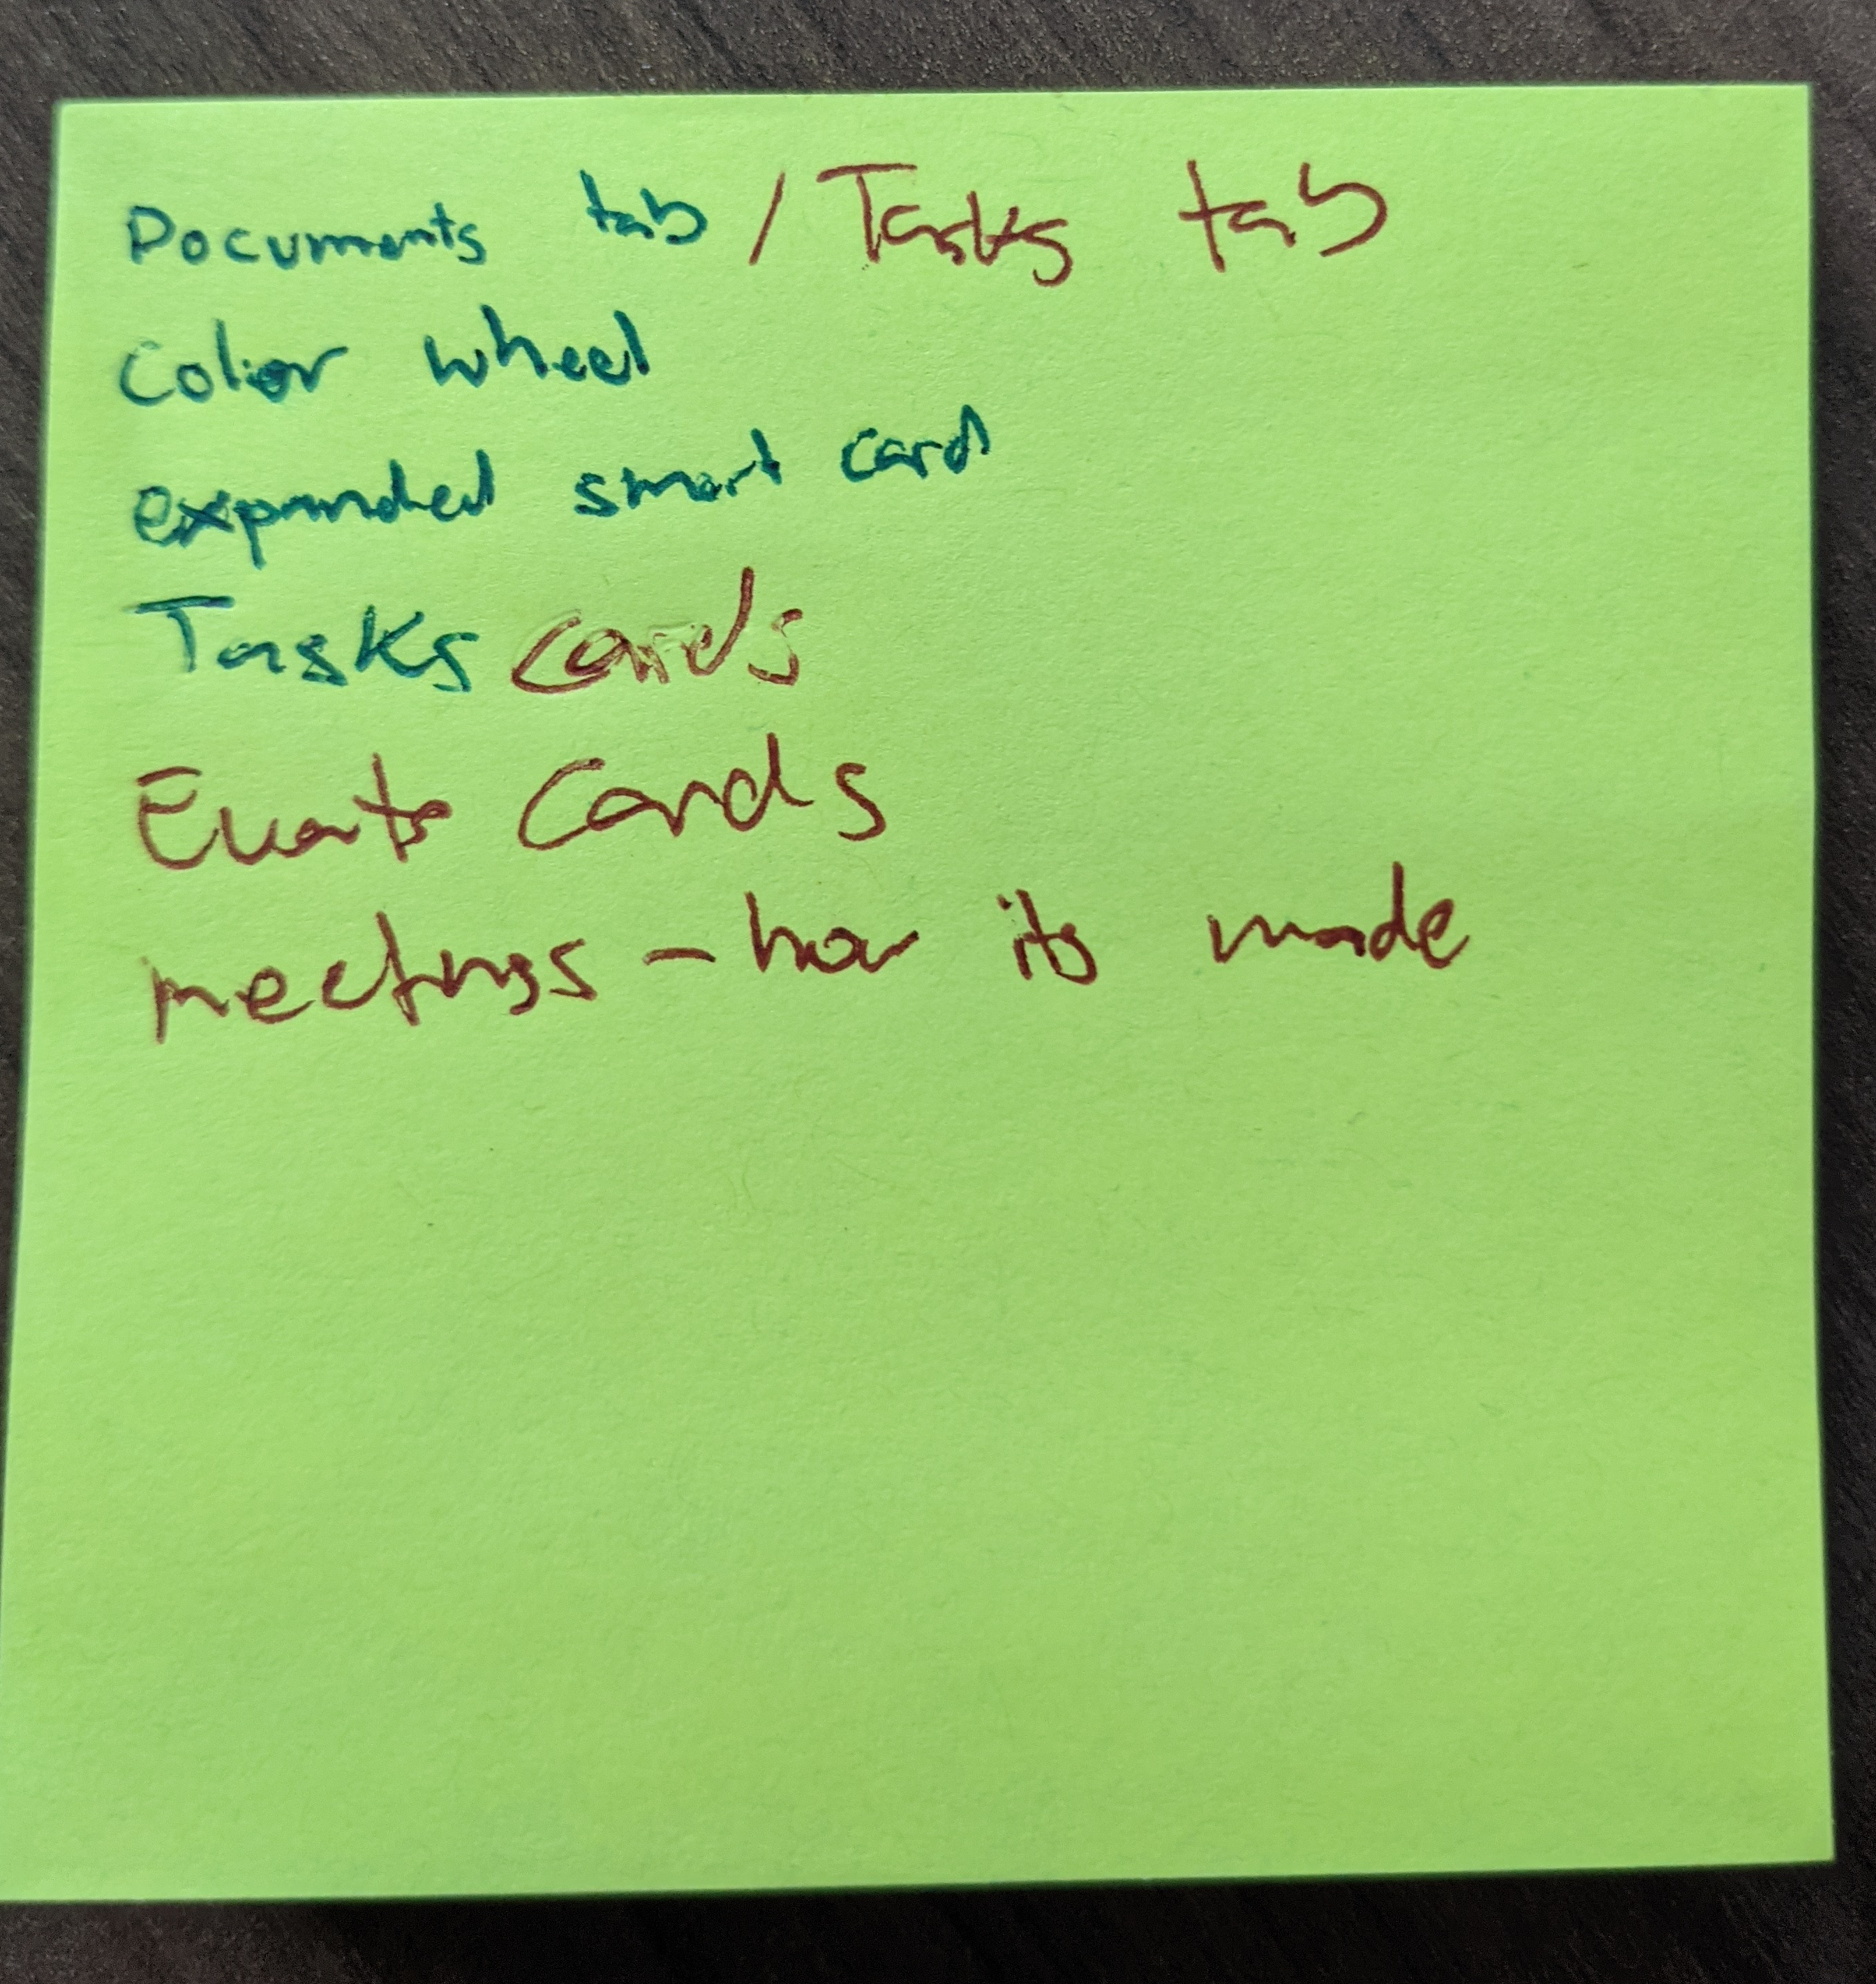 Documents tab / Tasks tab
Color wheel
expanded smart card
Tasks cards
Events Cards
meetings - how its made